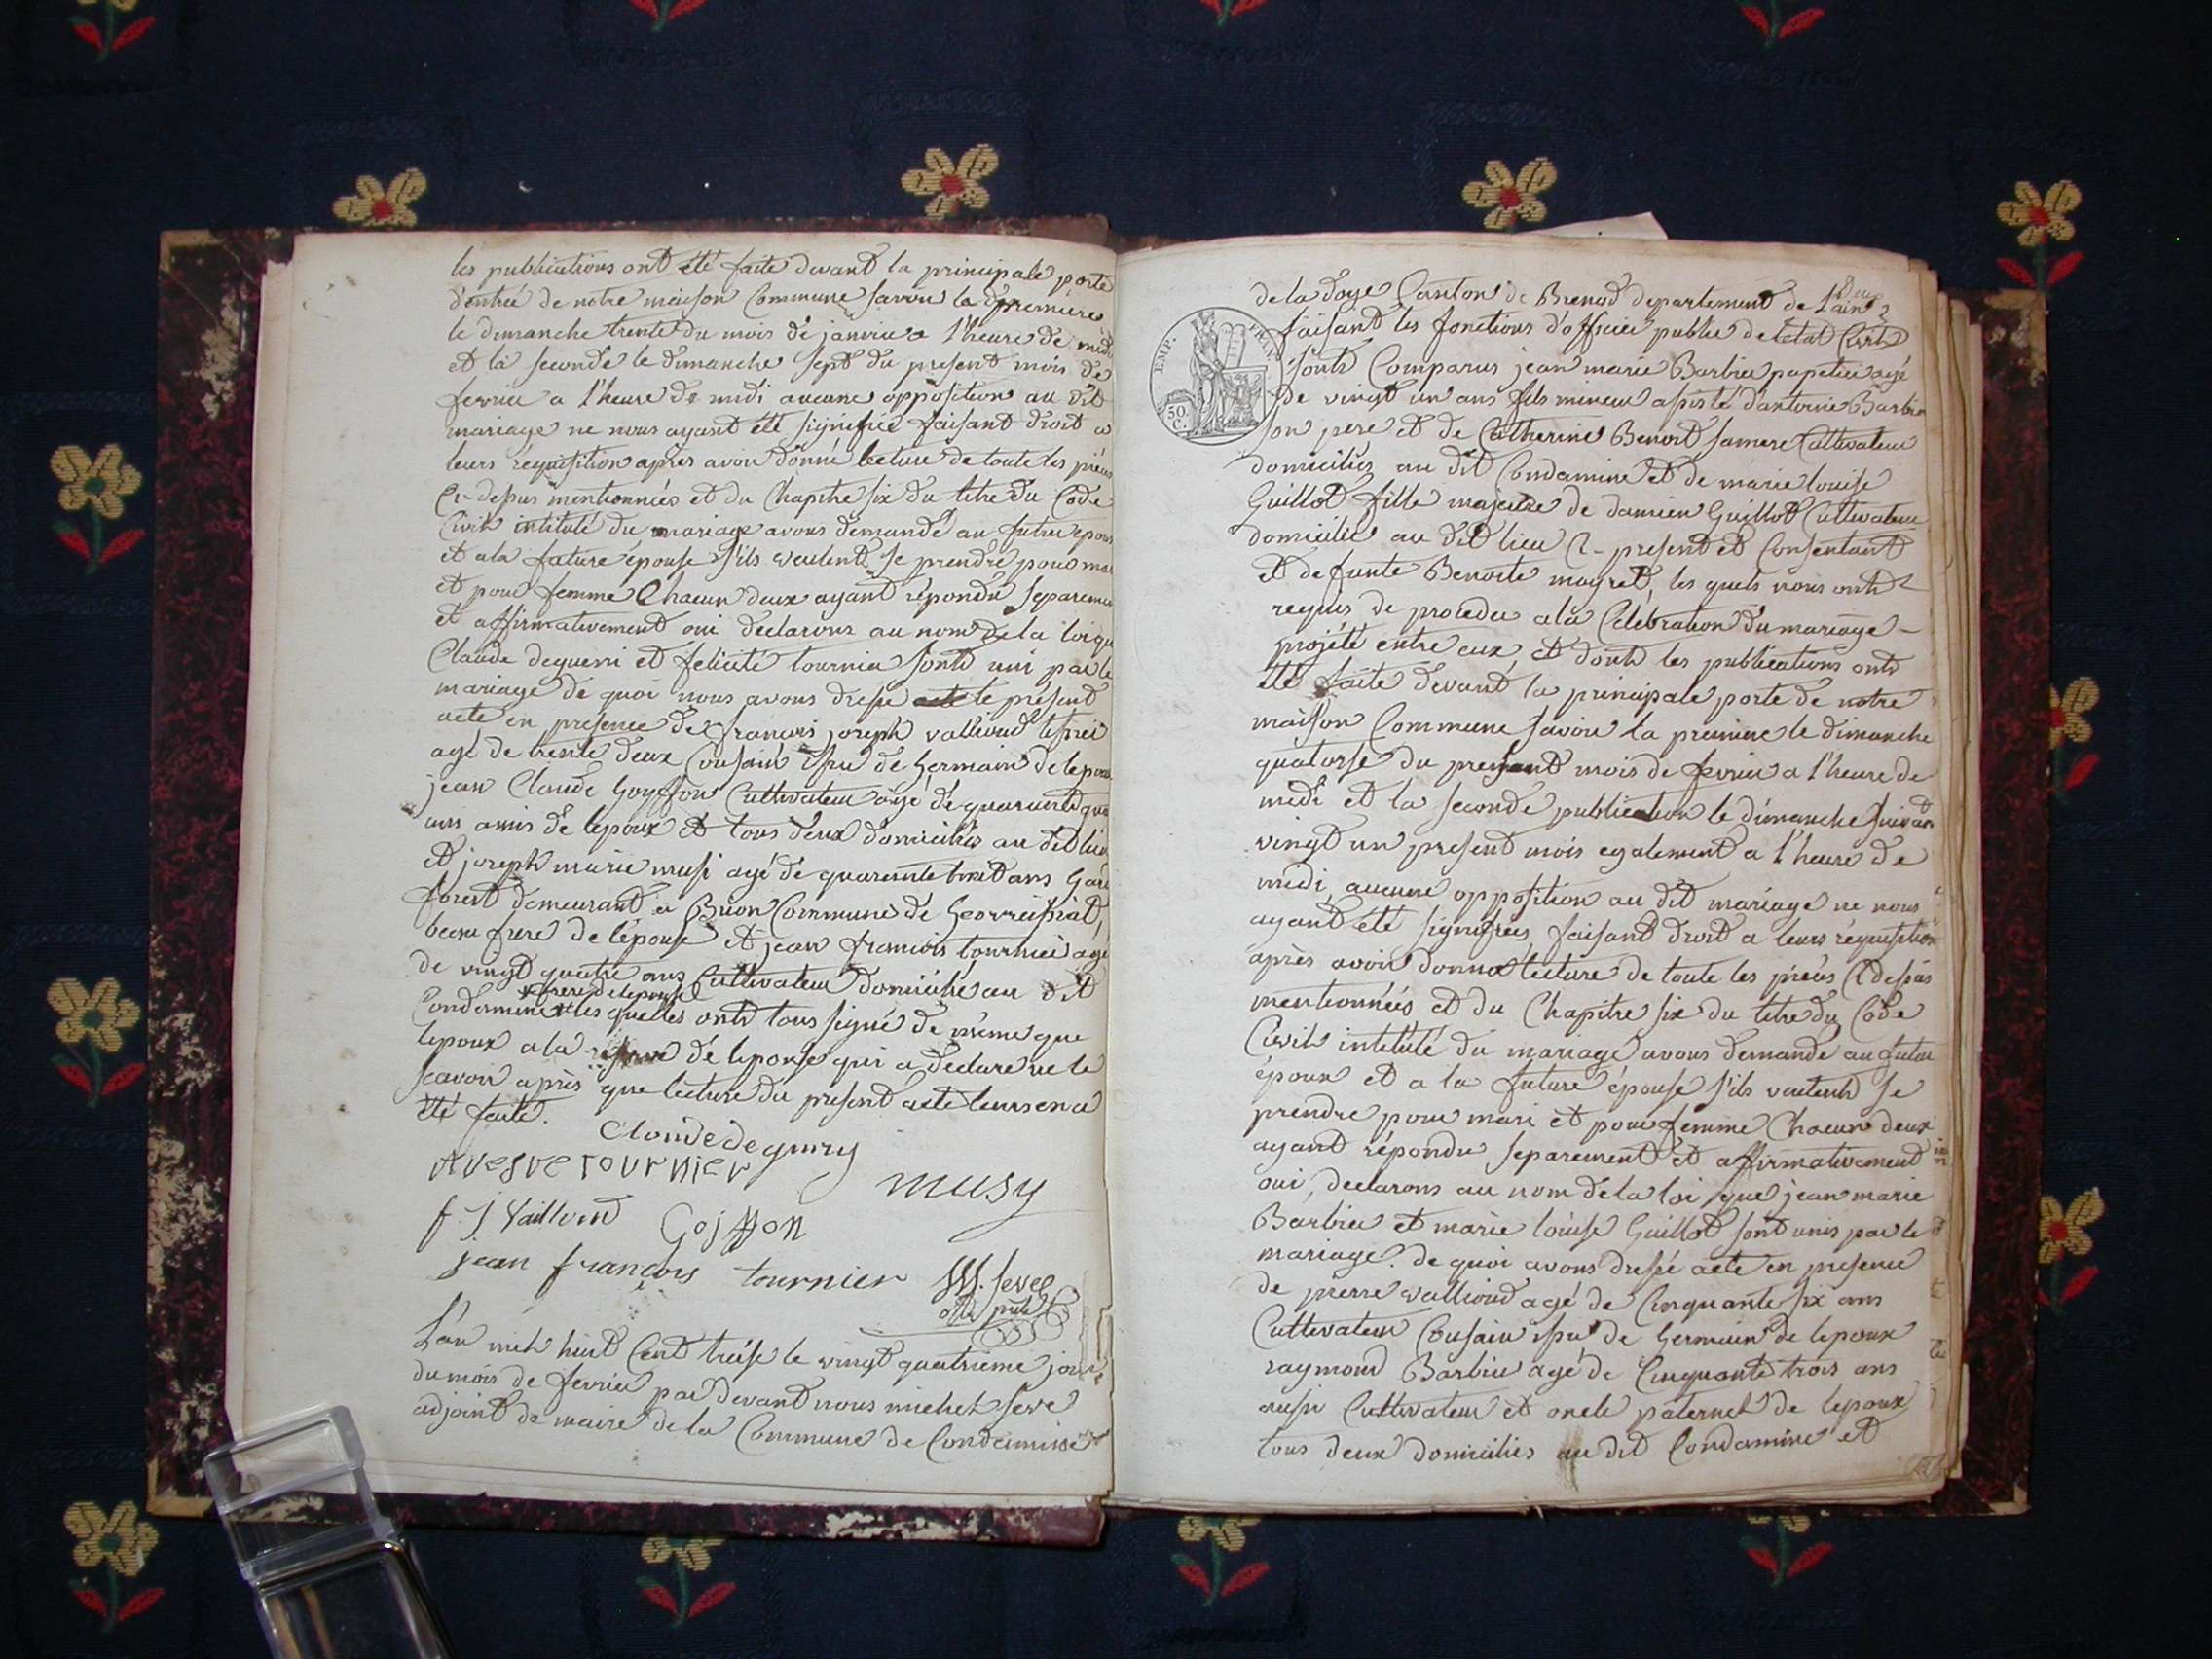 les publications ont été faite devant la principale porte
d'entrée de notre maison Commune savoir la premiere
le dimanche trente du mois de janvier a l'heure de midi
et la seconde le dimanche sept du present mois de
fevrier a l'heure de midi aucune opposition au dit
mariage ne nous ayant été signifiée faisant droit a
leurs requisition apres avoir donné lecture de toute les pieces
Ci-dessus mentionnées et du Chapitre six du titre du Code
Civil intitulé du mariage avons demandé au futur epoux
et a la future epouse s'ils veulent se prendre pour mari
et pour femme Chacun deux ayant répondu separement
et affirmativement oui declarons au nom de la loi que
Claude deguerri et felicité tournier sont uni par le
mariage de quoi nous avons dressé le présent
acte en presence de francois joseph vallioud
agé de trente deux Cousain issu de Germain de lepoux
jean Claude Goyffon Cultivateur agé de quarante
ans amis de lepoux et tous deux domiciliés au dit lieu
et joseph marie musi agé de quarante huit ans Garde
forest demeurant a Buon Commune de Geovreissiat,
beau frere de lépouse et jean francois tournier agé
de vingt quatre ans Cultivateur domicilié au dit
frere de lepouse
Condamine les quelles ont tous signé de même que
lepoux a la reserve de lepouse qui a declaré ne le
scavoir après que lecture du present acte leurs en a
été faite.
Claude deguery
AVesve tournier
musy
f j Vailloud Goiffon
jean françois tournier M. Seve
adj
L'an mil huit Cent treise le vingt quatrieme jour
du mois de fevrier par devant nous michel seve
adjoint de maire de la Commune de Condamine
de la doye Canton de Brenod departement de L'ain
EMP. FRAN.
50. C.
faisant les fonctions d'officier public de letat Civil
sont Comparus jean marie Barbier papetier agé
de vingt un ans fils mineur assisté d'antoine Barbier
son pere et de Catherine Benoit sa mere Cultivateur
domiciliés au dit Condamine et de marie louise
Guillot fille majeure de damien Guillot Cultivateur
domicilié au dit lieu Ci-present et Consentant
et defunte Benoite mayret, les quels nous ont
requis de proceder a la Célébration du mariage -
projété entre eux, et dont les publications ont
été faite devant la principale porte de notre
maison Commune savoir la premiere le dimanche
quatorse du present mois de fevrier a l'heure de
midi et la seconde publication le dimanche suivan
vingt un present mois egalement a l'heure de
midi, aucune opposition au dit mariage ne nous
ayant été signifiées faisant droit a leurs réquisition
après avoir donné lecture de toute les pieces Ci dessus
mentionnées et du Chapitre six du titre du Code
Civil intitulé du mariage avons demandé au futur
époux et a la future épouse s'ils veulent se
prendre pour mari et pour femme Chacun deux
ayant répondu separement et affirmativement
oui, declarons au nom de la loi que jean marie
Barbier et marie louise Guillot sont unis par le
mariage. de quoi avons dressé acte en presence
de pierre vallioud agé de Cinquante six ans
Cultivateur Cousain issu de Germain de lepoux
raymond Barbier agé de Cinquante trois ans
aussi Cultivateur et oncle paternel de lepoux
tous deux domiciliés au dit Condamine et